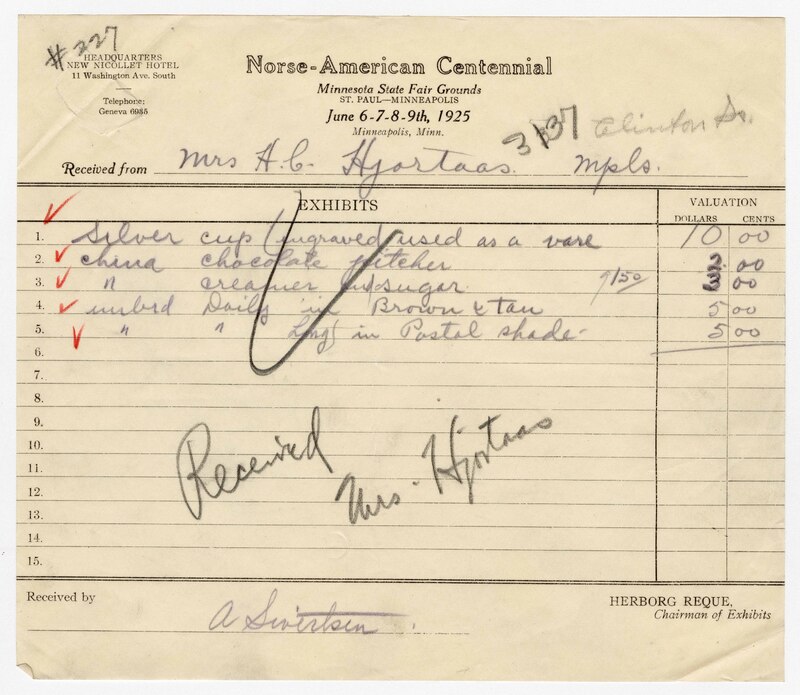 #227
HEADQUARTERS
NEW NICOLLET HOTEL
11 Washington Ave. South
Telephone:
Geneva 6985
Norse-American Centennial
Minnesota State Fair Grounds
ST. PAUL—MINNEAPOLIS
June 6-7-8-9th, 1925
Minneapolis, Minn.
3137 Clinton So.
Received from Mrs H.C. Hjortaas. Mpls.
EXHIBITS VALUATION
DOLLARS CENTS
1. Silver cup (engraved) used as a vase 10 00
2. china chocolate pitcher 00
3. " creamer sugar 9/50 00
4. Doily in Brown & tan 5 00
5. " " in Pastal shade- 5 00
6.
7.
8.
9.
10.
11.
12.
13.
14.
15.
Received
Mrs. Hjortaas
Received by A Sivertsen.
HERBORG REQUE,
Chairman of Exhibits